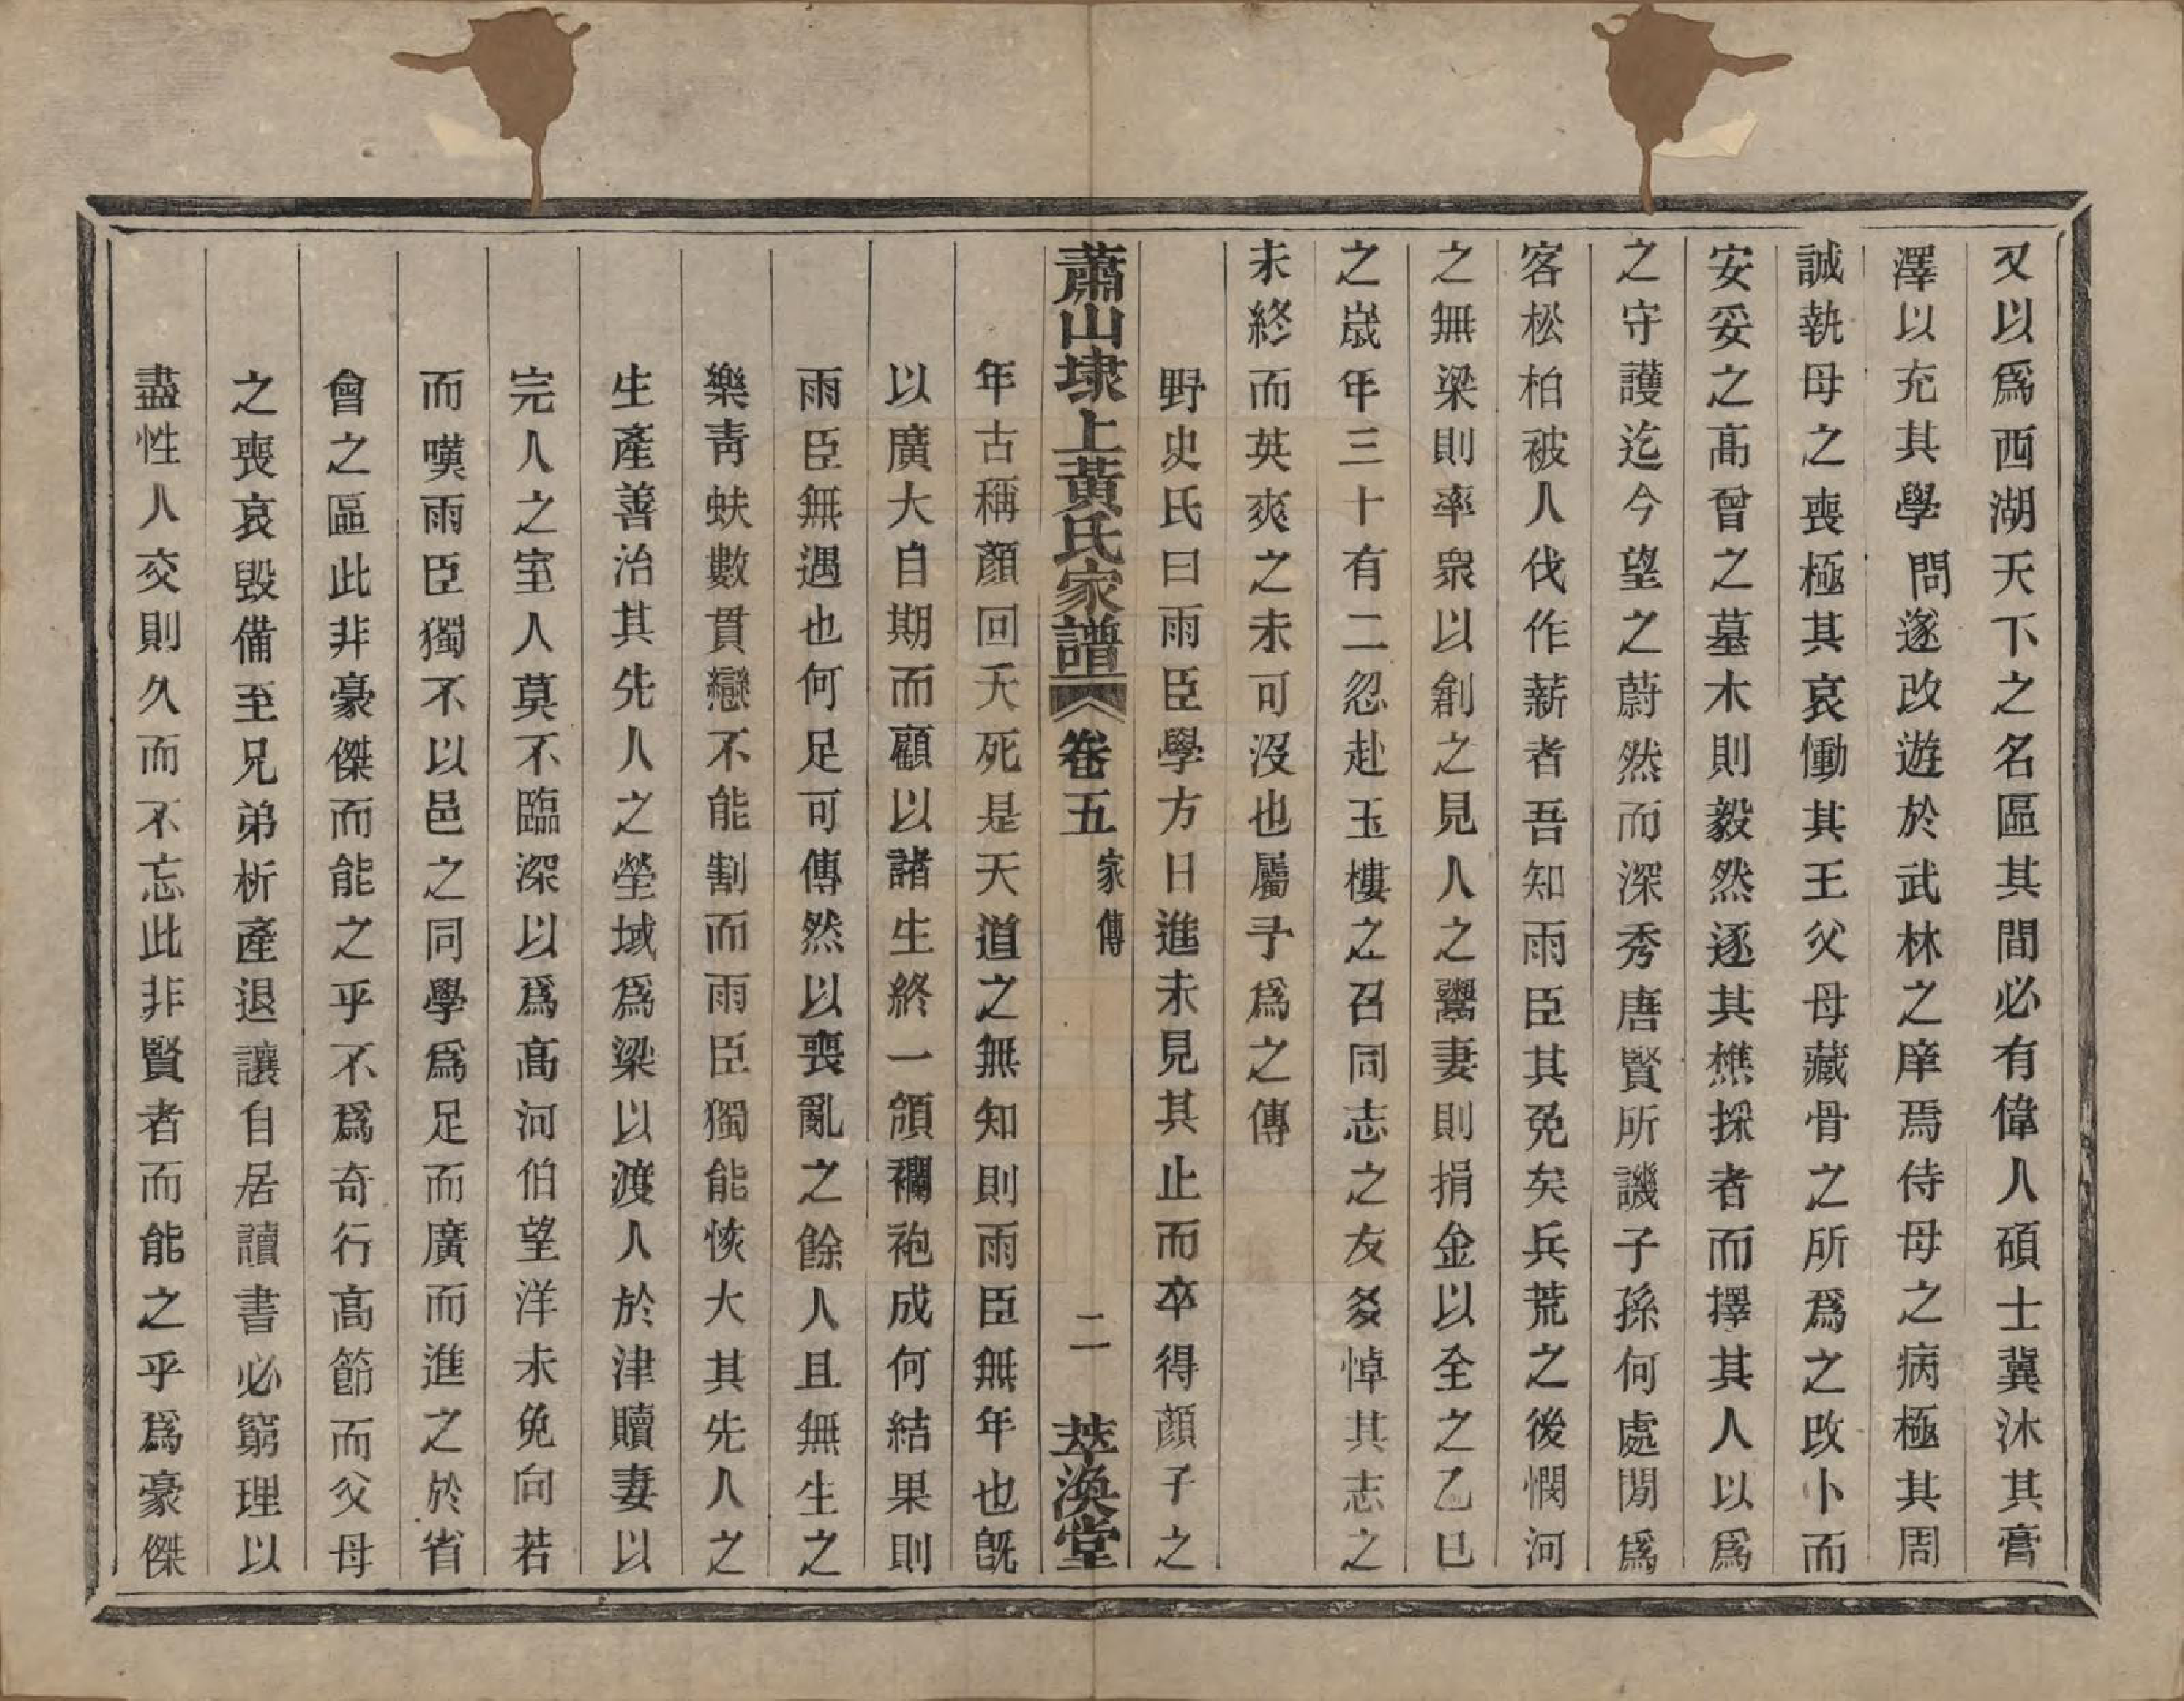 又以爲西湖天下之名區其間必有偉人碩士冀沐其膏
澤以充其學問遂改遊於武林之庠焉侍母之病極其周
誠執母之喪極其哀慟其王父母藏骨之所爲之改卜而
安妥之高曾之墓木則毅然逐其樵採者而擇其人以爲
之守護迄今望之蔚然而深秀唐賢所譏子孫何處閒爲
客松柏被人伐作薪者吾知雨臣其免矣兵荒之後憫河
之無梁則率衆以創之見人之鬻妻則捐金以全之乙巳
之歲年三十有二忽赴玉樓之召同志之友爰悼其志之
未終而英爽之未可沒也屬予爲之傳
野史氏曰雨臣學方日進未見其止而卒得顔子之
蕭山埭上黃氏家譜 卷五 家傳 二 萃渙堂
年古稱顏回夭死是天道之無知則雨臣無年也旣
以廣大自期而顧以諸生終一頒襴袍成何結果則
雨臣無遇也何足可傳然以喪亂之餘人且無生之
樂靑蚨數貫戀不能割而雨臣獨能恢大其先人之
生產善治其先人之塋域爲梁以渡人於津贖妻以
完人之室人莫不臨深以爲高河伯望洋未免向若
而嘆雨臣獨不以邑之同學爲足而廣而進之於省
會之區此非豪傑而能之乎不爲奇行高節而父母
之喪哀毀備至兄弟析產退讓自居讀書必窮理以
盡性人交則久而不忘此非賢者而能之乎爲豪傑